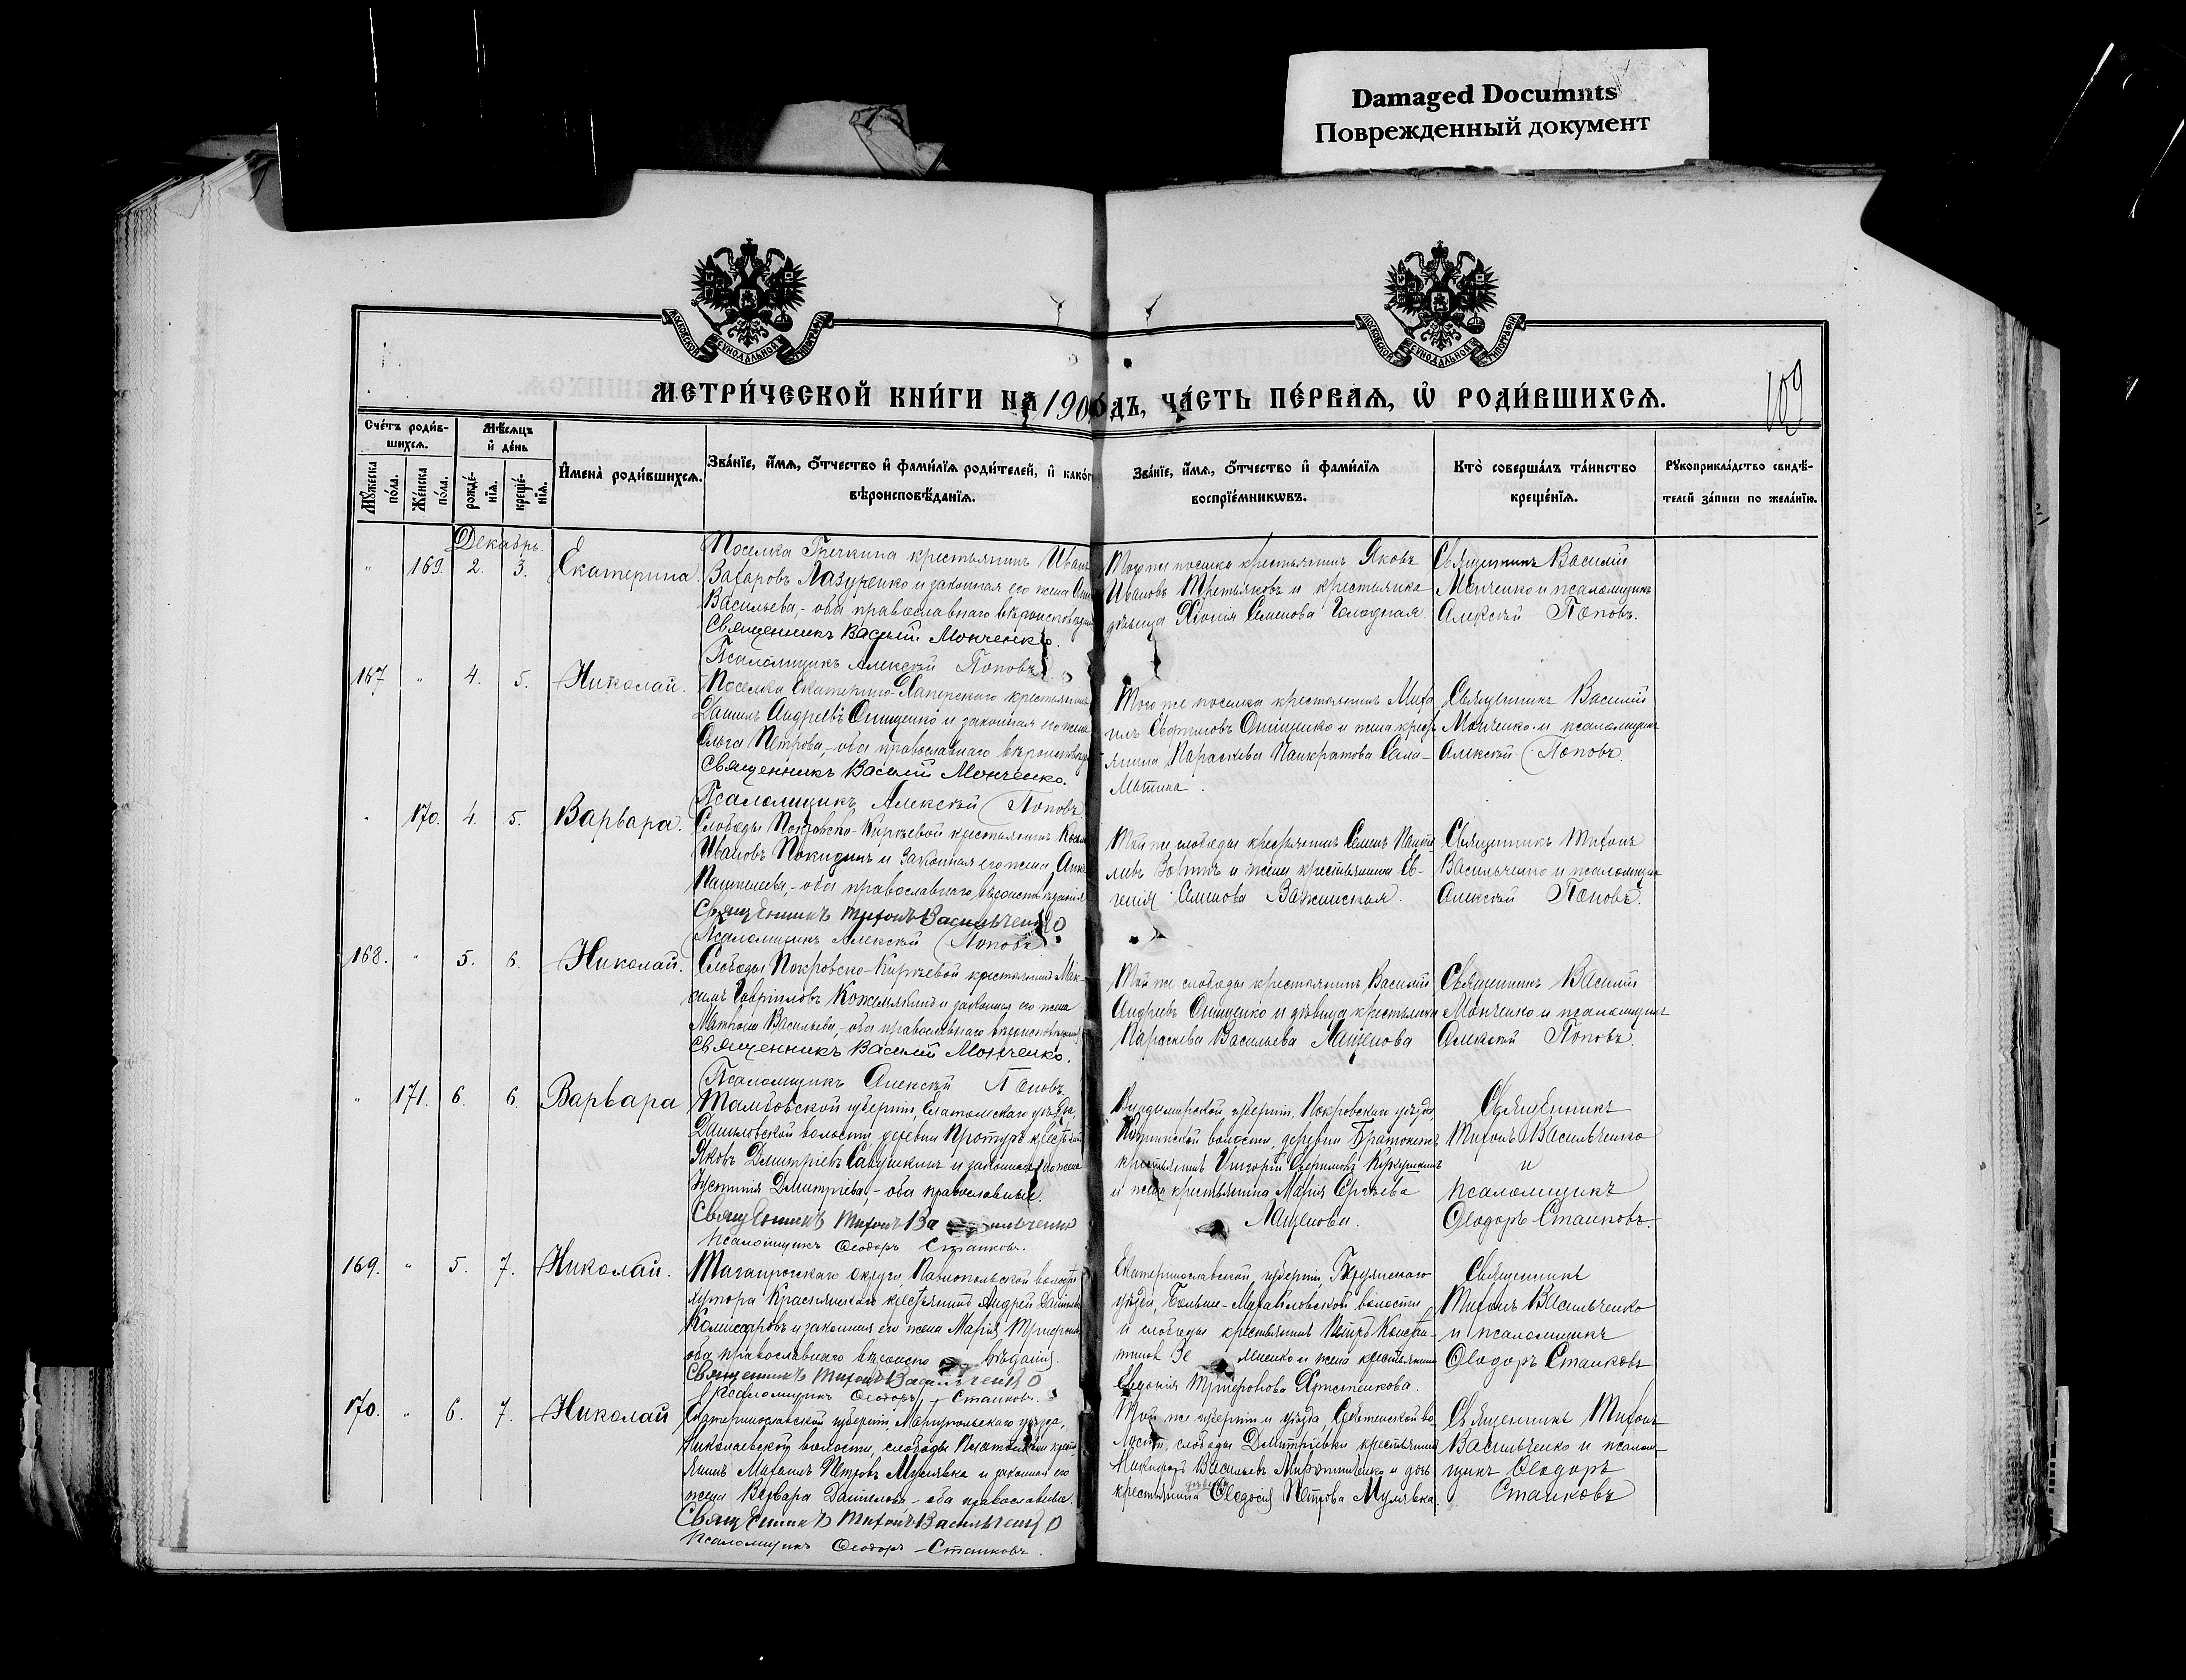 Damaged Documnts
Поврежденный документ
МОСКОВСКОЙ СѴНОДАЛЬНОЙ ТИПОГРАФІИ
МОСКОВСКОЙ СѴНОДАЛЬНОЙ ТИПОГРАФІИ
МЕТРИ́ЧЕСКОЙ КНИ́ГИ НА 190 ДЪ, ЧА́СТЬ ПЕ́РВАѦ, Ѡ҆ РОДИ́ВШИХСѦ.
109
Сче́тъ роди́в-
шихсѧ.
Мѣсѧцъ
и҆ де́нь
Мꙋжеска по́ла.
Же́нска по́ла.
рожде́-нїѧ.
креще́-нїѧ.
И҆мена̀ роди́вшихсѧ.
Зва́нїе, и҆́мѧ, ѻ҆́тчество и҆ фами́лїѧ роди́телей, и҆ како́г
вѣроисповѣ́данїѧ.
Зва́нїе, и҆́мѧ, ѻ҆́тчество и҆ фами́лїѧ
воспрїе́мникѡвъ.
Кто̀ соверша́лъ та́инство
креще́нїѧ.
Рꙋкоприкла́дство свидѣ́-
телей за́писи по жела́нїю.
Декабрь.
" 169. 2. 3. Екатерина.
Поселка Гречкина крестьянинъ Иванъ
Захаровъ Лазуренко и законная его жена
Васильева, - оба православнаго вѣроисповѣдан
Священникъ Василій Монченко.
Псаломщикъ Алексѣй Поповъ.
Того же поселка крестьянинъ Яковъ
Ивановъ Третьяковъ и крестьянка
дѣвица Хіонія Семенова Голодная.
Священникъ Василій
Монченко и псаломщикъ
Алексѣй Поповъ.
167 " 4. 5. Николай.
Поселка Екатерино-Хаперскаго крестьянинъ
Даніилъ Андреевъ Онищенко и законная его жена
Ольга Петрова, - оба православнаго вѣроисповѣд
Священникъ Василій Монченко.
Псаломщикъ Алексѣй Поповъ.
Того же поселка крестьянинъ Миха
илъ Онищенко и жена крест
янина Параскева Панкратова Сала-
матина.
Священникъ Василій
Монченко и псаломщикъ
Алексѣй Поповъ.
" 170. 4. 5. Варвара.
Слободы Покровско-Кирѣевой крестьянинъ
Ивановъ Покидинъ и законная его жена Анна
Пантелеева, - оба православнаго вѣроисповѣданія
Священникъ Тихонъ Васильченко
Псаломщикъ Алексѣй Поповъ.
Той же слободы крестьянинъ Семенъ
и жена крестьянина Ев-
генія Семенова
Священникъ Тихонъ
Васильченко и псаломщикъ
Алексѣй Поповъ.
168. " 5. 6. Николай.
Слободы Покровско-Кирѣевой крестьянинъ Мак-
симъ Гавріиловъ Кожемякинъ и законная его жена
Матрона Васильева, - оба православнаго вѣроисповѣданія
Священникъ Василій Монченко.
Псаломщикъ Алексѣй Поповъ.
Той же слободы крестьянинъ Василій
Андреевъ Онищенко и дѣвица крестьянка
Параскева Васильева Лащенова
Священникъ Василій
Монченко и псаломщикъ
Алексѣй Поповъ.
" 171. 6. 6. Варвара
Тамбовской губерніи, Елатомскаго уѣзда,
Даниловской волости деревни крестьянинъ
Яковъ Дмитріевъ Савушкинъ и законная его жена
Устинія Дмитріева, - оба православные.
Священникъ Тихонъ Ва сильченко
Псаломщикъ Ѳеодоръ Станковъ.
Владимірской губерніи, Покровскаго уѣзда,
волости, деревни
крестьянинъ Григорій
и жена крестьянина Марія Сергѣева
Лащенова.
Священникъ
Тихонъ Васильченко
и
псаломщикъ
Ѳеодоръ Станковъ.
169. " 5. 7. Николай.
Таганрогскаго округа, волости
хутора крестьянинъ Андрей
Комиссаровъ и законная его жена Марія
оба православнаго вѣроиспо вѣданія.
Священникъ Тихонъ Васильченко
Псаломщикъ Ѳеодоръ Станковъ.
Екатеринославской губерніи,
уѣзда, Больше-Михайловской волости
и слободы крестьянинъ Петръ Констан-
тинов и жена крестьянина
Евдокія Трифонова
Священникъ
Тихонъ Васильченко
и псаломщикъ
Ѳеодоръ Станковъ
170. " 6. 7. Николай
Екатеринославской губерніи, Маріупольскаго уѣзда,
Николаевской волости, слободы крест
янинъ Михаилъ Петровъ Мулявка и законная его
жена Варвара Даніилова - оба православные.
Священникъ Тихонъ Васильченко
Псаломщикъ Ѳеодоръ Станковъ.
Той же губерніи и уѣзда, во-
лости, слободы Дмитріевки крестьянинъ
Васильевъ и дочь
крестьянина дѣвица Ѳеодосія Петрова Мулявка.
Священникъ Тихонъ
Васильченко и псалом-
щикъ Ѳеодоръ
Станковъ